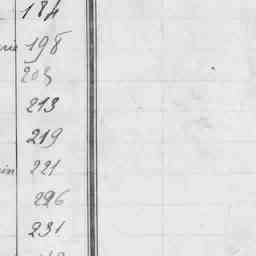 184
198
203
213
219
in 221
226
231